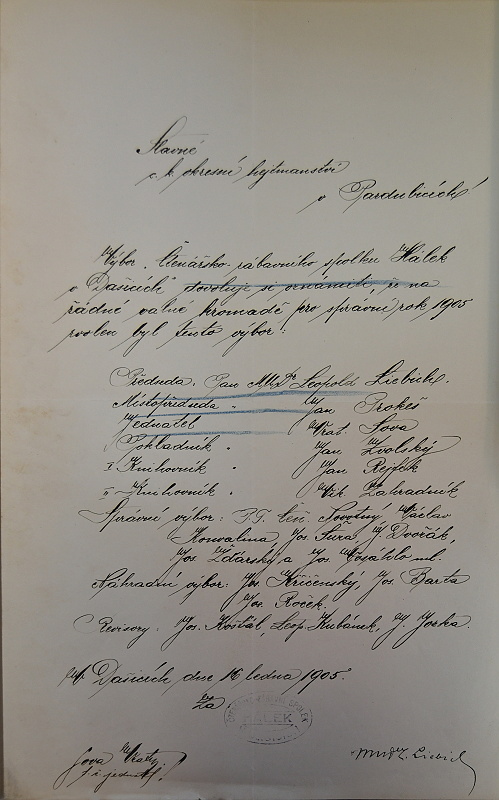 Slavné
c. k. okresní hejtmanství
v Pardubicích!
Výbor "Čtenářsko-zábavního spolku Hálek
v Dašicích" dovoluje si oznámiti, že na
řádné valné hromadě pro správní rok 1905
zvolen byl tento výbor:
Předseda. Pan MUDr Leopold Liebich.
Místopředseda " Jan Prokeš
Jednatel Vrat. Sova
Pokladník " Jan Zvolský
I Knihovník " Jan Rejfek
II Knihovník " Vik. Zahradník
Správní výbor: P. T. Čeň. Novotný, Václav
Konvalina, Jos. Fura, J. Dvořák,
Jos. Žďárský a Jos. ml.
Náhradní výbor: Jos. Křičenský, Jos. Barta
Jos. Roček.
Revisory. Jos. Košťál, Leop. Kubánek, J. Joska.
V Dašicích, dne 16 ledna 1905.
Za
HÁLEK
Sova Vrat.
t. č. jednatel.
MUDr L. Liebich